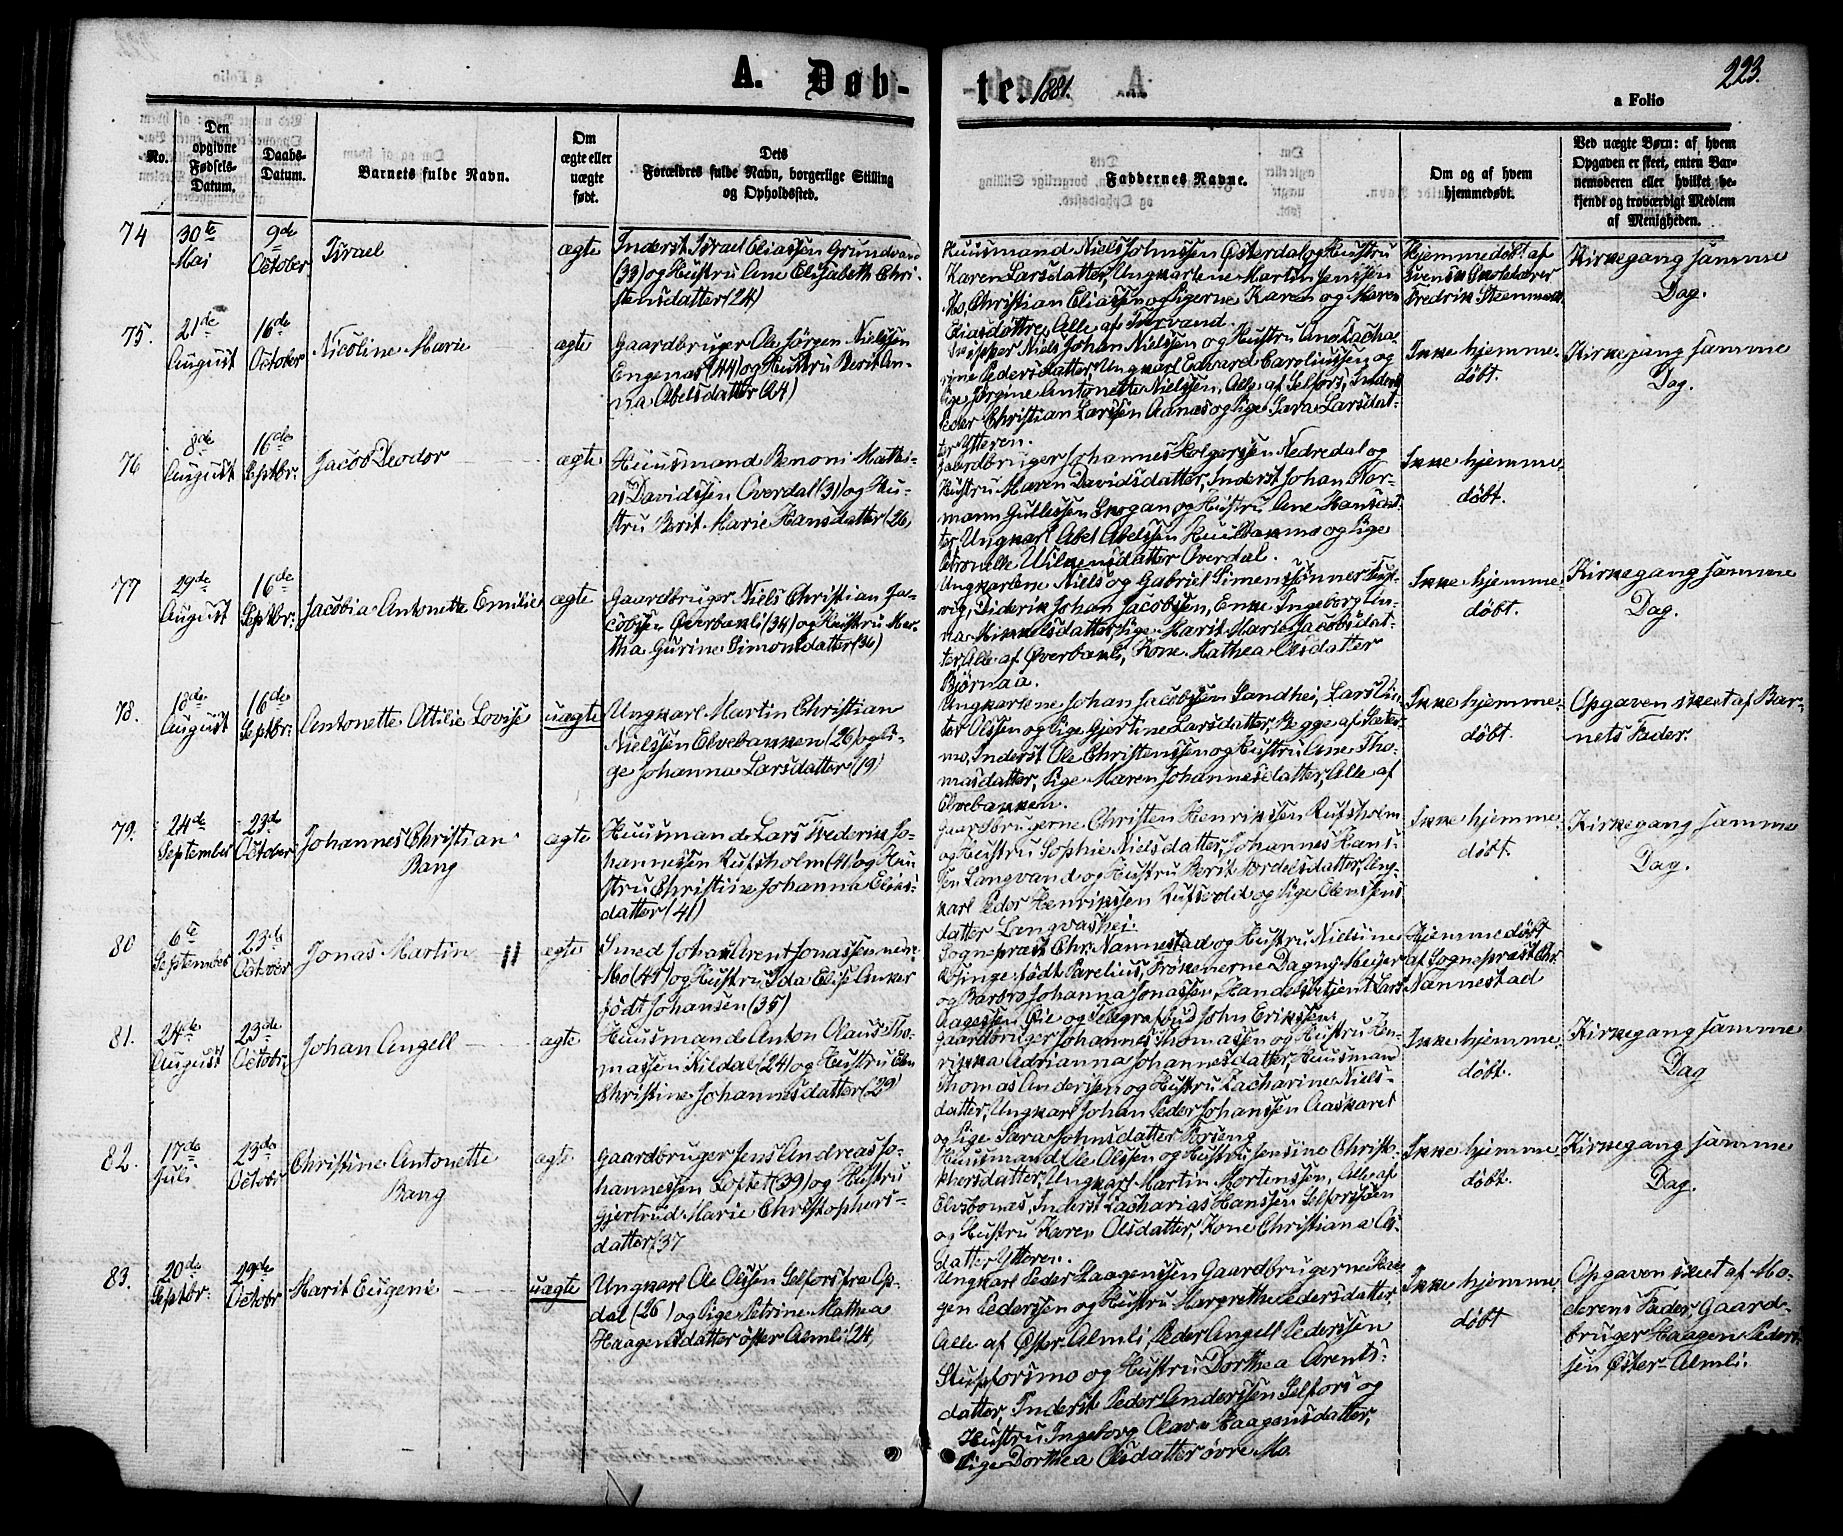 A. Døb-
te. 1881.
223.
a Folio
No.
Den opgivne Fødsels-Datum.
Daabs-Datum.
Barnets fulde Navn.
Om ægte eller uægte født.
Dets Forældres fulde Navn, borgerlige Stilling og Opholdssted.
Faddernes Navne.
Om og af hvem hjemmedøbt.
Ved uægte Børn: af hvem Opgaven er skeet, enten Barnemoderen eller hvilket bekjendt og troværdigt Medlem af Menigheden.
74
30te Mai
9de October
Israel
ægte
Inderst Israel Eliassen Grundvand
(33) og Hustru Ane Elisabeth Chri-
stensdatter (24)
Huusmand Niels Johnssen Østerdal og Hustru
Karen Larsdatter, Ungkarlene Martin Jenssen
Mo, Christian Eliassen og Pigerne Karen og Maren
Eliasdøttre, Alle af
Hjemmedøbt af
svensk Skolelærer
Fredrik
Kirkegang samme
Dag.
75.
21de August
16de October
Nicoline Marie
ægte
Gaardbruger Ole Jørgen Nielssen
Engenæs (44) og Hustru Berit An-
na Abelsdatter (24)
Niels Johan Nielsen og Hustru Ane Zacha-
rine Pedersdatter, Ungkarl Edvard Caroliussen og
Pige Jørgine Antonette Nielssen, Alle af Selfors, Inderst
Peder Christian Larssen Aanæs og Pige Sara Larsdat-
ter Ytteren.
Ikke hjemme-
døbt.
Kirkegang samme
Dag.
76
8de August
16de Septbr:
Jacob Deodor
ægte
Huusmand Benoni Mathi-
as Davidssen Overdal (31) og Hu-
stru Berit Marie Hansdatter (26)
Gaardbruger Johannes Holgersen Nedredal og
Hustru Maren Davidsdatter, Inderst Johan Nor-
mann Gullessen Skogan og Hustru Ane Hansdat-
ter, Ungkarl Abel Abelssen og Pige
Petronelle Wilkensdatter Overdal.
Ikke hjemme-
døbt.
77
29de August
16de Septbr:
Jacobia Antonette Emilie
ægte
Gaardbruger Niels Christian Ja-
cobsen Øverbakli (34) og Hustru Mar-
tha Gurine Simonsdatter (36)
Ungkarlene Niels og Gabriel Simenssønner
vig, Diderik Johan Jacobssen, Enke Ingeborg An-
na Mikkelsdatter, Pige Marit Marie Jacobsdat-
ter, Alle af Øverbakli, Kone Mathea Olsdatter
Bjørnaa.
Ikke hjemme-
døbt.
Kirkegang samme
Dag.
78.
18de August
16de Septbr:
Antonette Ottilie Lovise
uægte
Ungkarl Martin Christian
Nielssen Elvebakken (26) og Pi-
ge Johanna Larsdatter (19)
Ungkarlene Johan Jacobssen Sandhei, Lars
Olssen og Pige Gjertine Larsdatter, Begge af Sæter-
mo, Inderst Ole Christenssen og Hustru Ane Tho-
masdatter, Pige Maren Johannesdatter, Alle af
Elvebakken.
Ikke hjemme-
døbt.
Opgaven skeet af Bar-
nets Fader.
79.
24de September
23de October
Johannes Christian
Bang
ægte
Huusmand Lars Frederik Jo-
hannessen Rufsholm (41) og Hu-
stru Christine Johanna Elias-
datter (41)
Gaardbrugerne Christen Henrikssen Rufsholm
og Hustru Sophie Nielsdatter, Johannes Hans-
sen Langvand og Hustru Berit Tordelsdatter, Ung-
karl Peder Henrikssen Rufsvolid og Pige
datter Langvashei.
Ikke hjemme-
døbt.
Kirkegang samme
Dag.
80
6te September
23de October
Jonas Martin
ægte
Smed Johan Arent Jonassen nedre
Mo (44) og Hustru Ida Elise Anker
født Johansen (35)
Sognepræst Chr. Nannestad og Hustru Nielsine
Kfinge født Parelius, Frøknerne Dagny Meyer
og Barbro Johanna Jonassen, Handelsbetjent Lars
Aagessen Øie og Telegrafbud John Erikssen.
Hjemmedøbt
af Sognepræst Chr.
Nannestad
81.
24de August
23de Octobr.
Johan Angell
ægte
Huusmand Anton Olaus Tho-
massen Kildal (24) og Hustru Elen
Christine Johannesdatter (29)
Gaardbruger Johannes Thomassen og Hustru Hen-
rikka Adrianna Johannesdatter, Huusmand
Thomas Anderssen og Hustru Zacharine Niels-
datter, Ungkarl Johan Peder Johanssen Aaskaret
og Pige Sara Johnsdatter Forseng
Ikke hjemme-
døbt.
Kirkegang samme
Dag
82.
17de Juli
23de Octobr
Christine Antonette
Bang
ægte
Gaardbruger Jens Andreas Jo-
hannessen Loftet (39) og Hustru
Gjertrud Marie Christophers-
datter (37
Huusmand Ole Olssen og Hustru Jensine Christo-
phersdatter, Ungkarl Martin Mortenssen, Alle af
Elvebonæs, Inderst Zacharias Hanssen Selforssøen
og Hustru Karen Olsdatter, Kone Christiana Ols-
datter Ytteren.
Ikke hjemme-
døbt.
Kirkegang samme
Dag.
83.
20de Septbr:
29de Octobr
Marit Eugenie
uægte
Ungkarl Ole Olssen Selfors fra Op-
dal (26) og Pige Petrine Mathea
Haagensdatter øster Almli (24)
Ungkarl Peder Haagenssen Gaardbrugerne Haa-
gen Pederssen og Hustru Margrethe Pedersdatter,
Alle af Øster-Almli, Peder Angell Pederssen
Stupforsmo og Hustru Dorthea Arents-
datter, Inderst Peder Anderssen Selfors og
Hustru Ingeborg Olava Haagensdatter,
Pige Dorthea Olsdatter øvre Mo.
Ikke hjemme-
døbt
Opgaven skeet af Mo-
derens Fader, Gaard-
bruger Haagen Peders-
sen Øster-Almli.